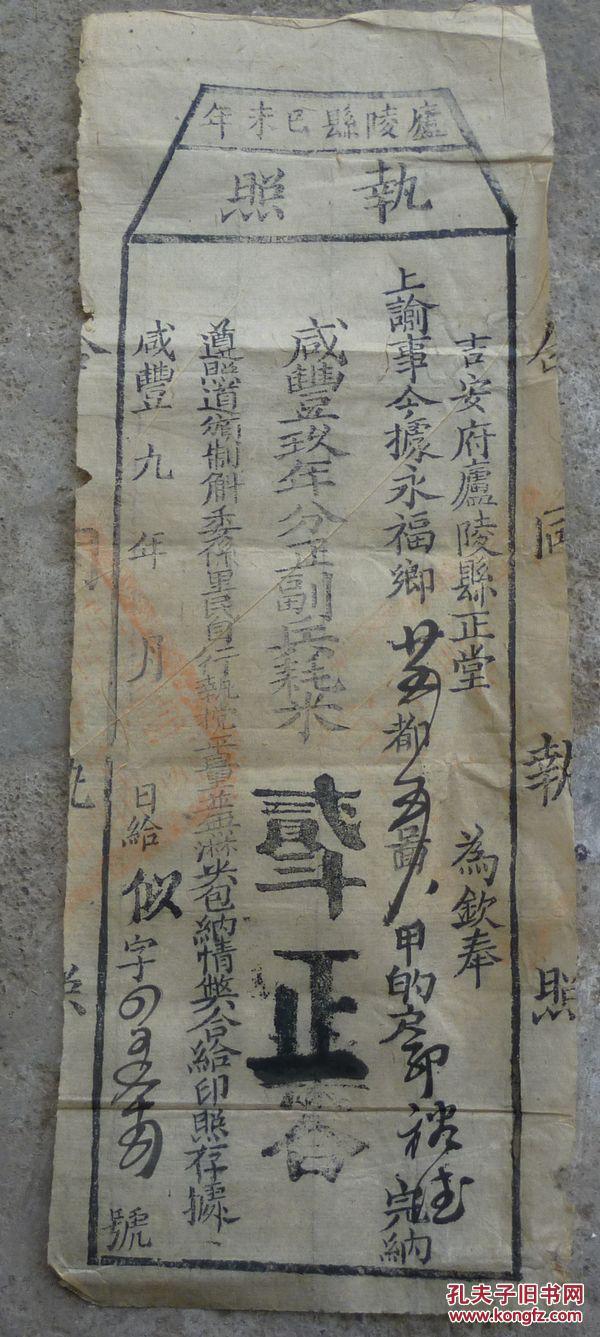 廬陵縣己未年
執照
吉安府廬陵縣正堂 為欽奉
上諭事今據永福鄉廿五都五啚八甲的户 完納
咸豐玖年分正副兵耗米貳斗正合
遵照道憲制觧委係里民自行執 並無 米包納情獘合給印照存據
咸豐九年 月 日給似字 號
合同執照
孔夫子旧书网
kongfz.com